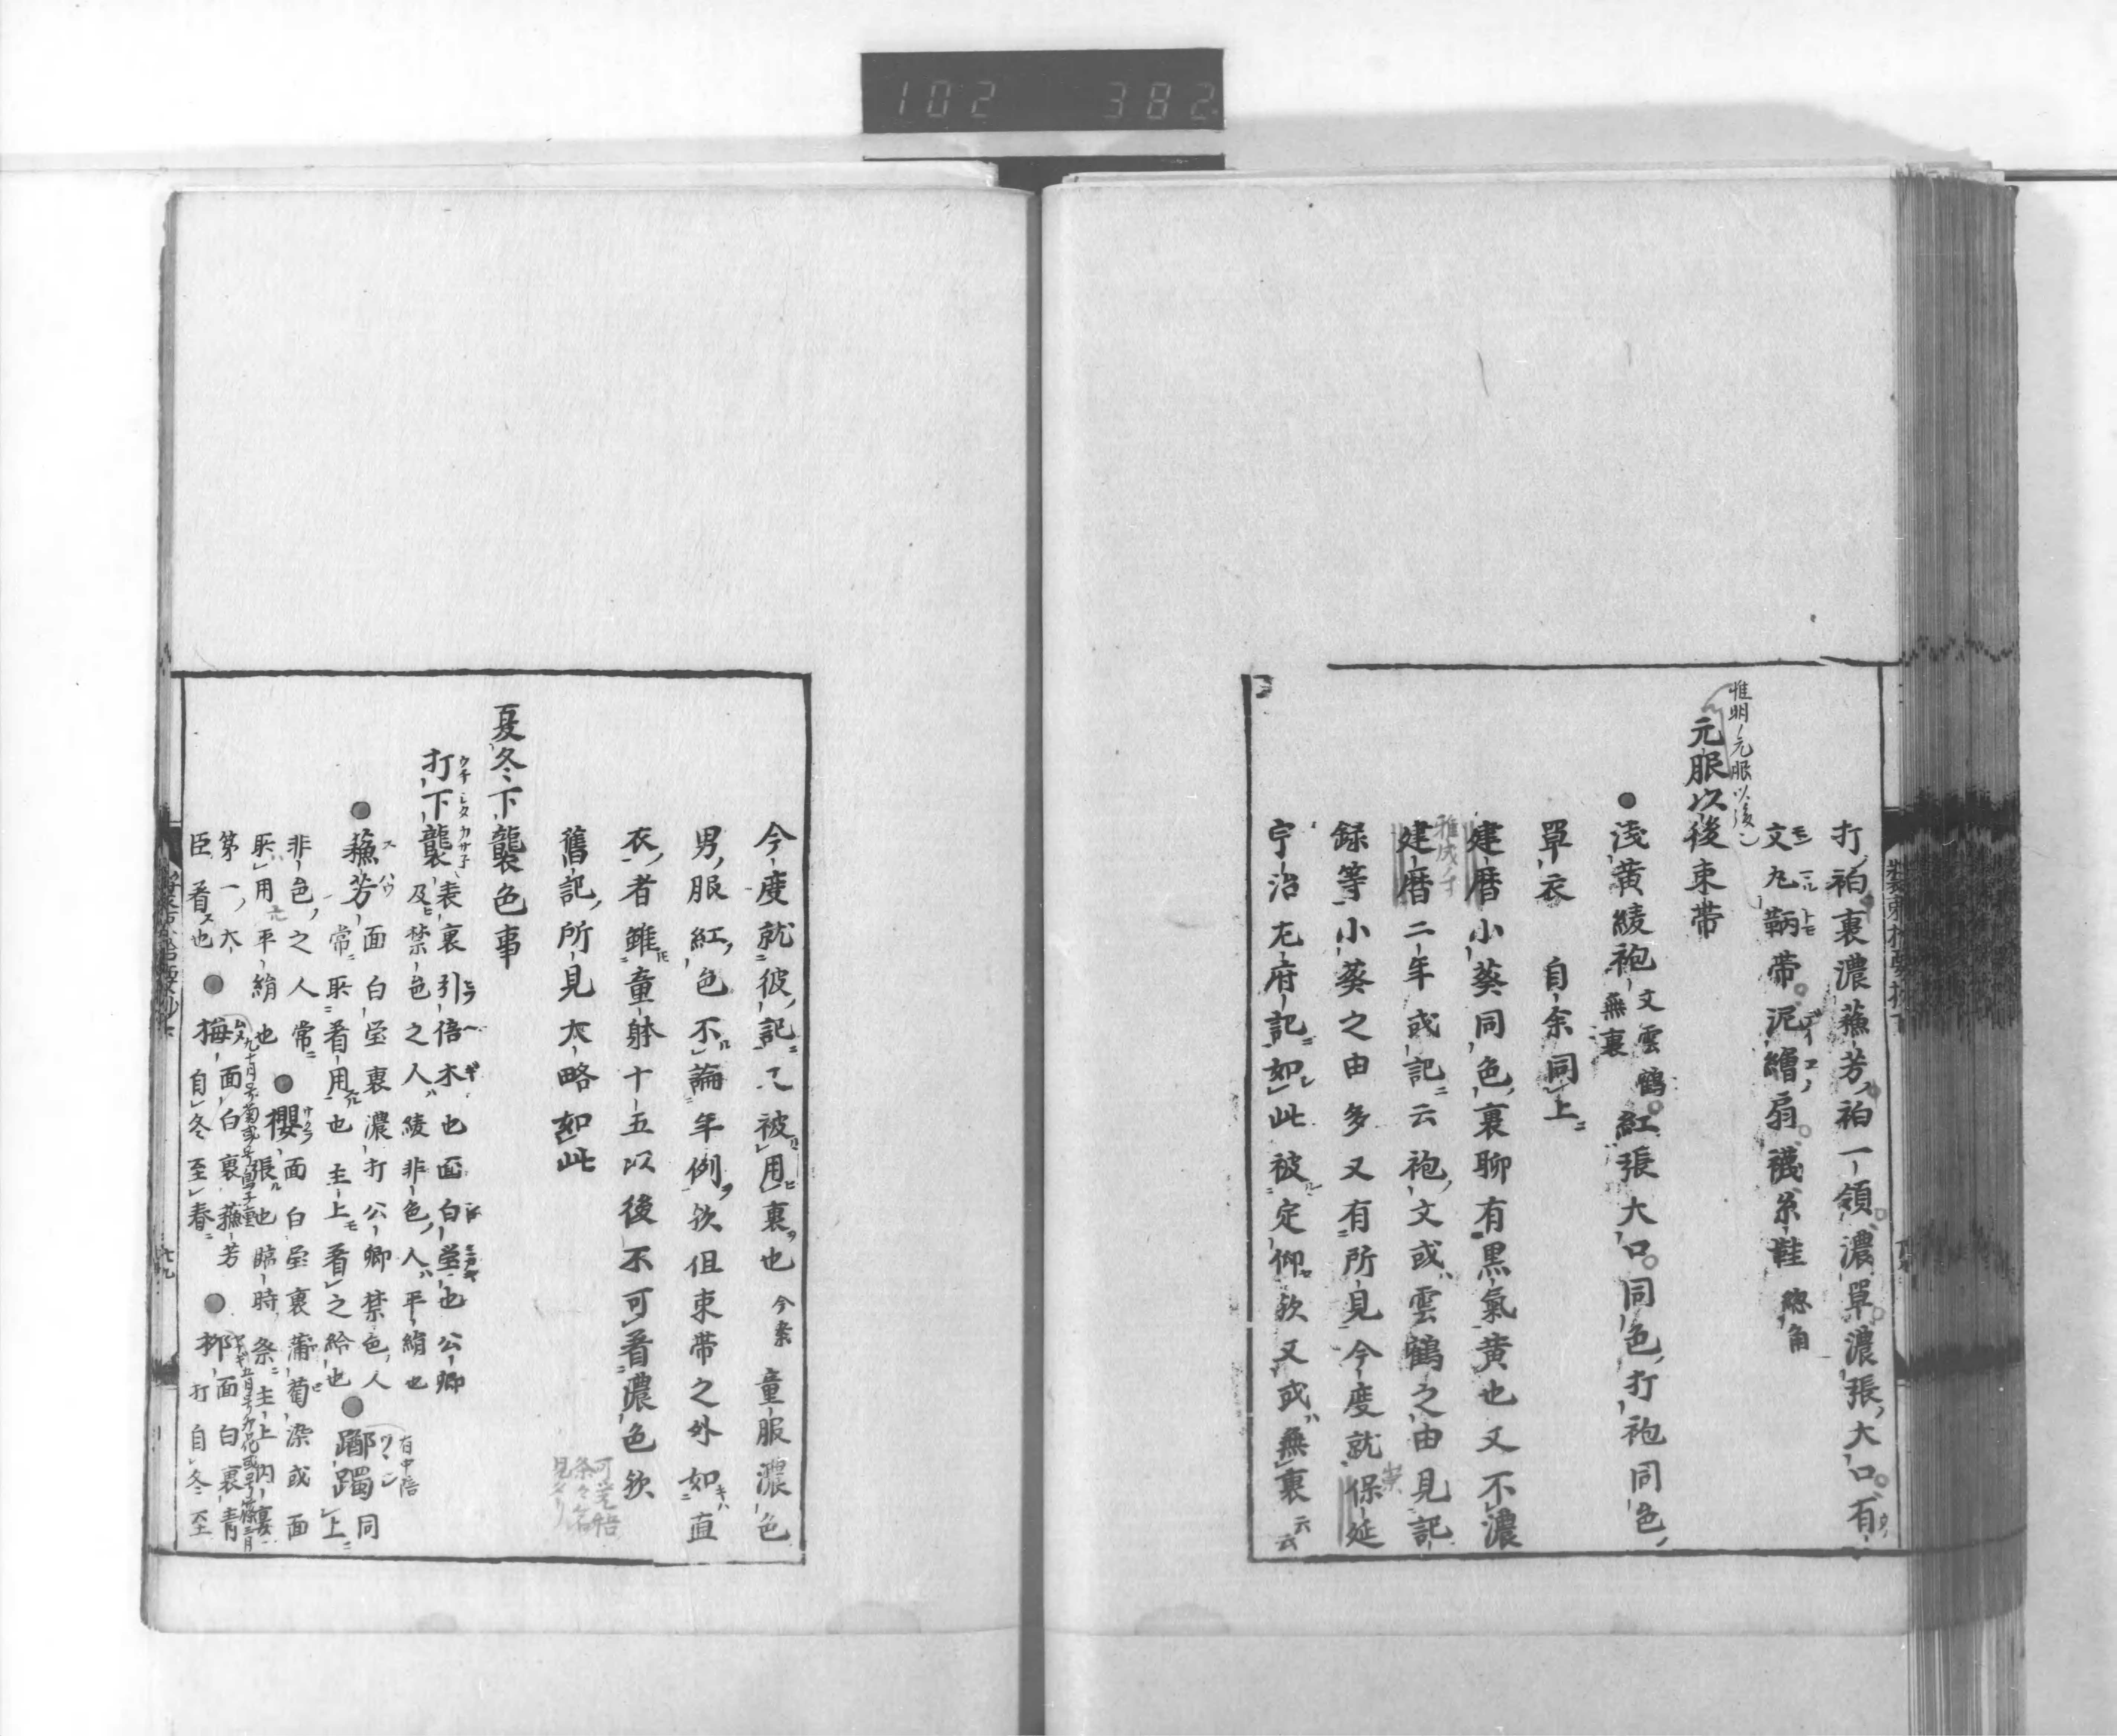 102 382
打衵裏濃蘓芳衵一領濃單濃張大口有
文丸鞆帯泥繪扇襪糸鞋 總角
元服以後束帯
浅黄綾袍 文雲鶴 無裏 紅張大口同色打袍同色
單衣 自余同上
建暦小葵同色裏聊有黒氣黄也又不濃
建暦二年或記云袍文或雲鶴之由見記
録等小葵之由多又有所見今度就保延
宇治左府記如此被定仰欤又或無裏云云
今度就彼記不被用裏也 今案 童服濃色
男服紅色不論年例欤但束帯之外如直
衣者雖童躰十五以後不可着濃色欤
舊記所見大略如此
夏冬下襲色事
打下襲 表裏引倍木也面白瑩也公卿
及禁色之人綾非色人平絹也
蘓芳 面白瑩裏濃打公卿禁色人
常取着用也主上着之給也 躑躅 同上
非色之人常 櫻 面白瑩裏蒲萄染或面
張也臨時祭主上内裏
取用平絹也
第一大臣着也 梅 面白裏蘓芳 自冬至春 柳 面白裏青打 自冬至